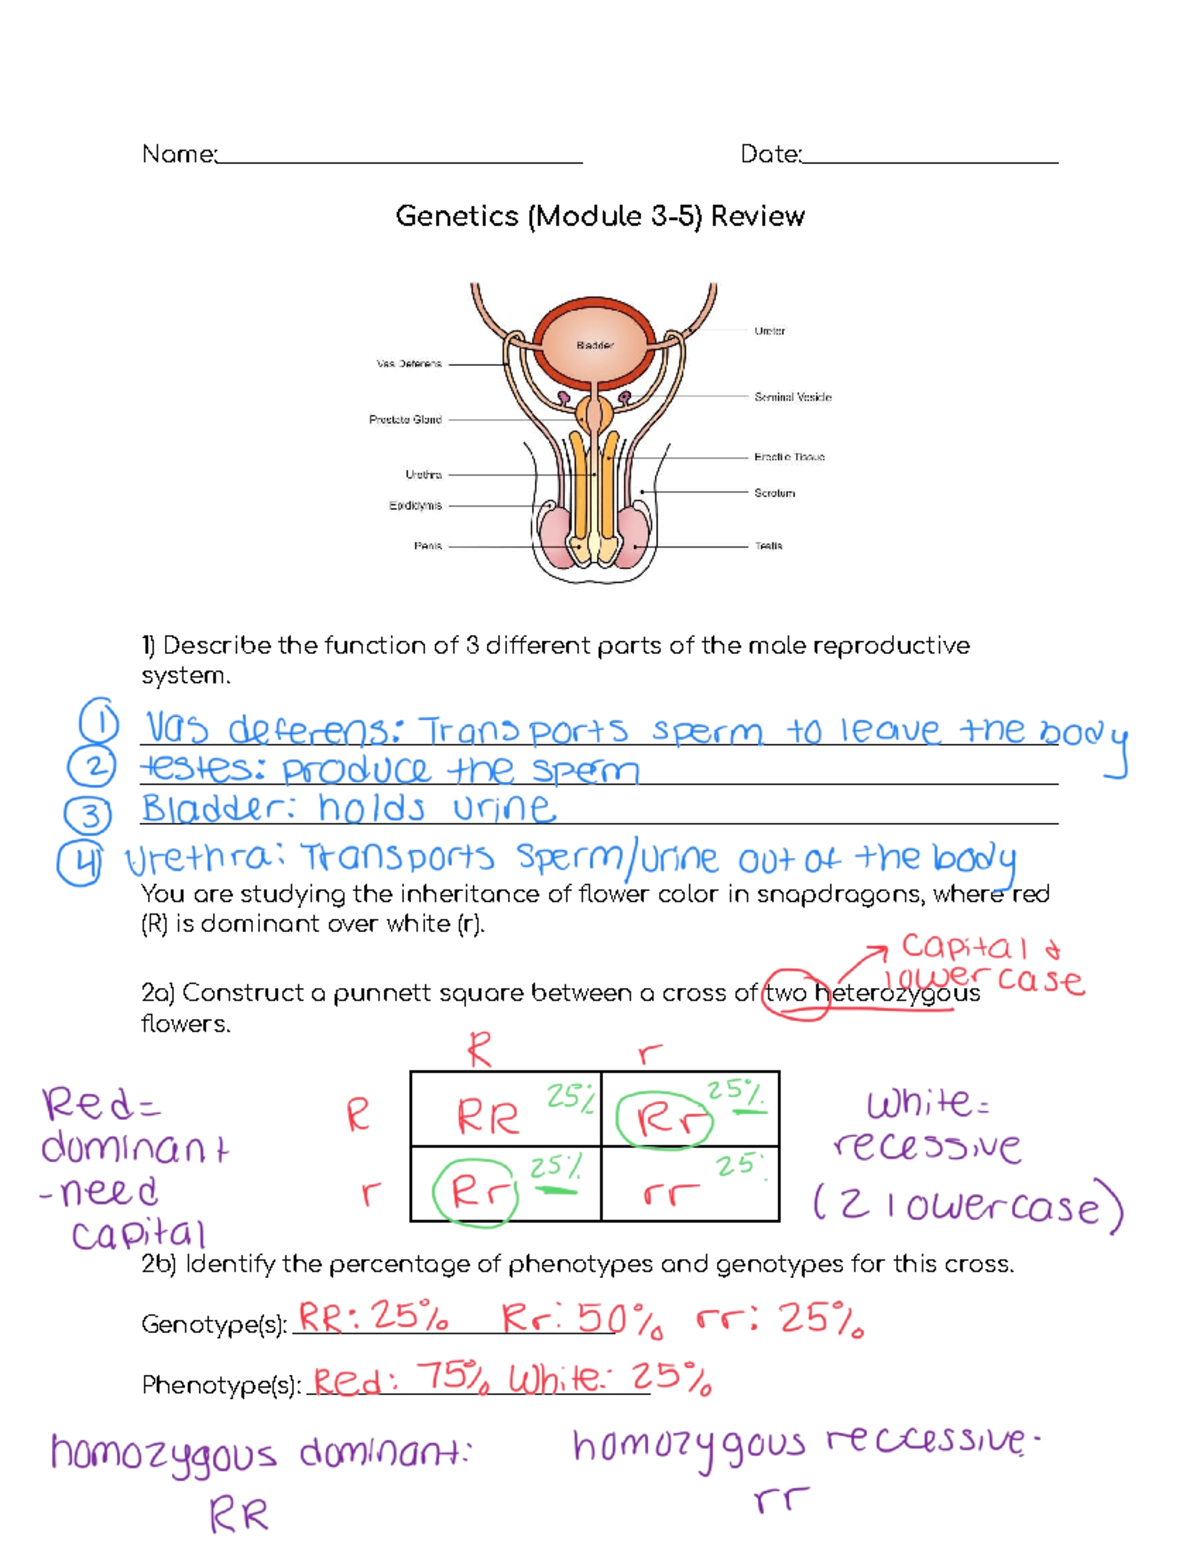 Name: Date:
Genetics (Module 3-5) Review
Bladder
Ureter
Vas Deferens
Seminal Vesicle
Prostate Gland
Erectile Tissue
Urethra
Scrotum
Epididymis
Penis
Testis
1) Describe the function of 3 different parts of the male reproductive
system.
① Vas deferens: Transports sperm to leave the body
② testes: produce the sperm
③ Bladder: holds urine
④ Urethra: Transports sperm/urine out of the body
You are studying the inheritance of flower color in snapdragons, where red
(R) is dominant over white (r).
capital &
lowercase
2a) Construct a punnett square between a cross of two heterozygous
flowers.
R r
Red= dominant -need capital
R RR 25% Rr 25%
r Rr 25% rr 25%
White= recessive (2 lowercase)
2b) Identify the percentage of phenotypes and genotypes for this cross.
Genotype(s): RR: 25% Rr: 50% rr: 25%
Phenotype(s): Red: 75% White: 25%
homozygous dominant: homozygous reccessive:
RR rr